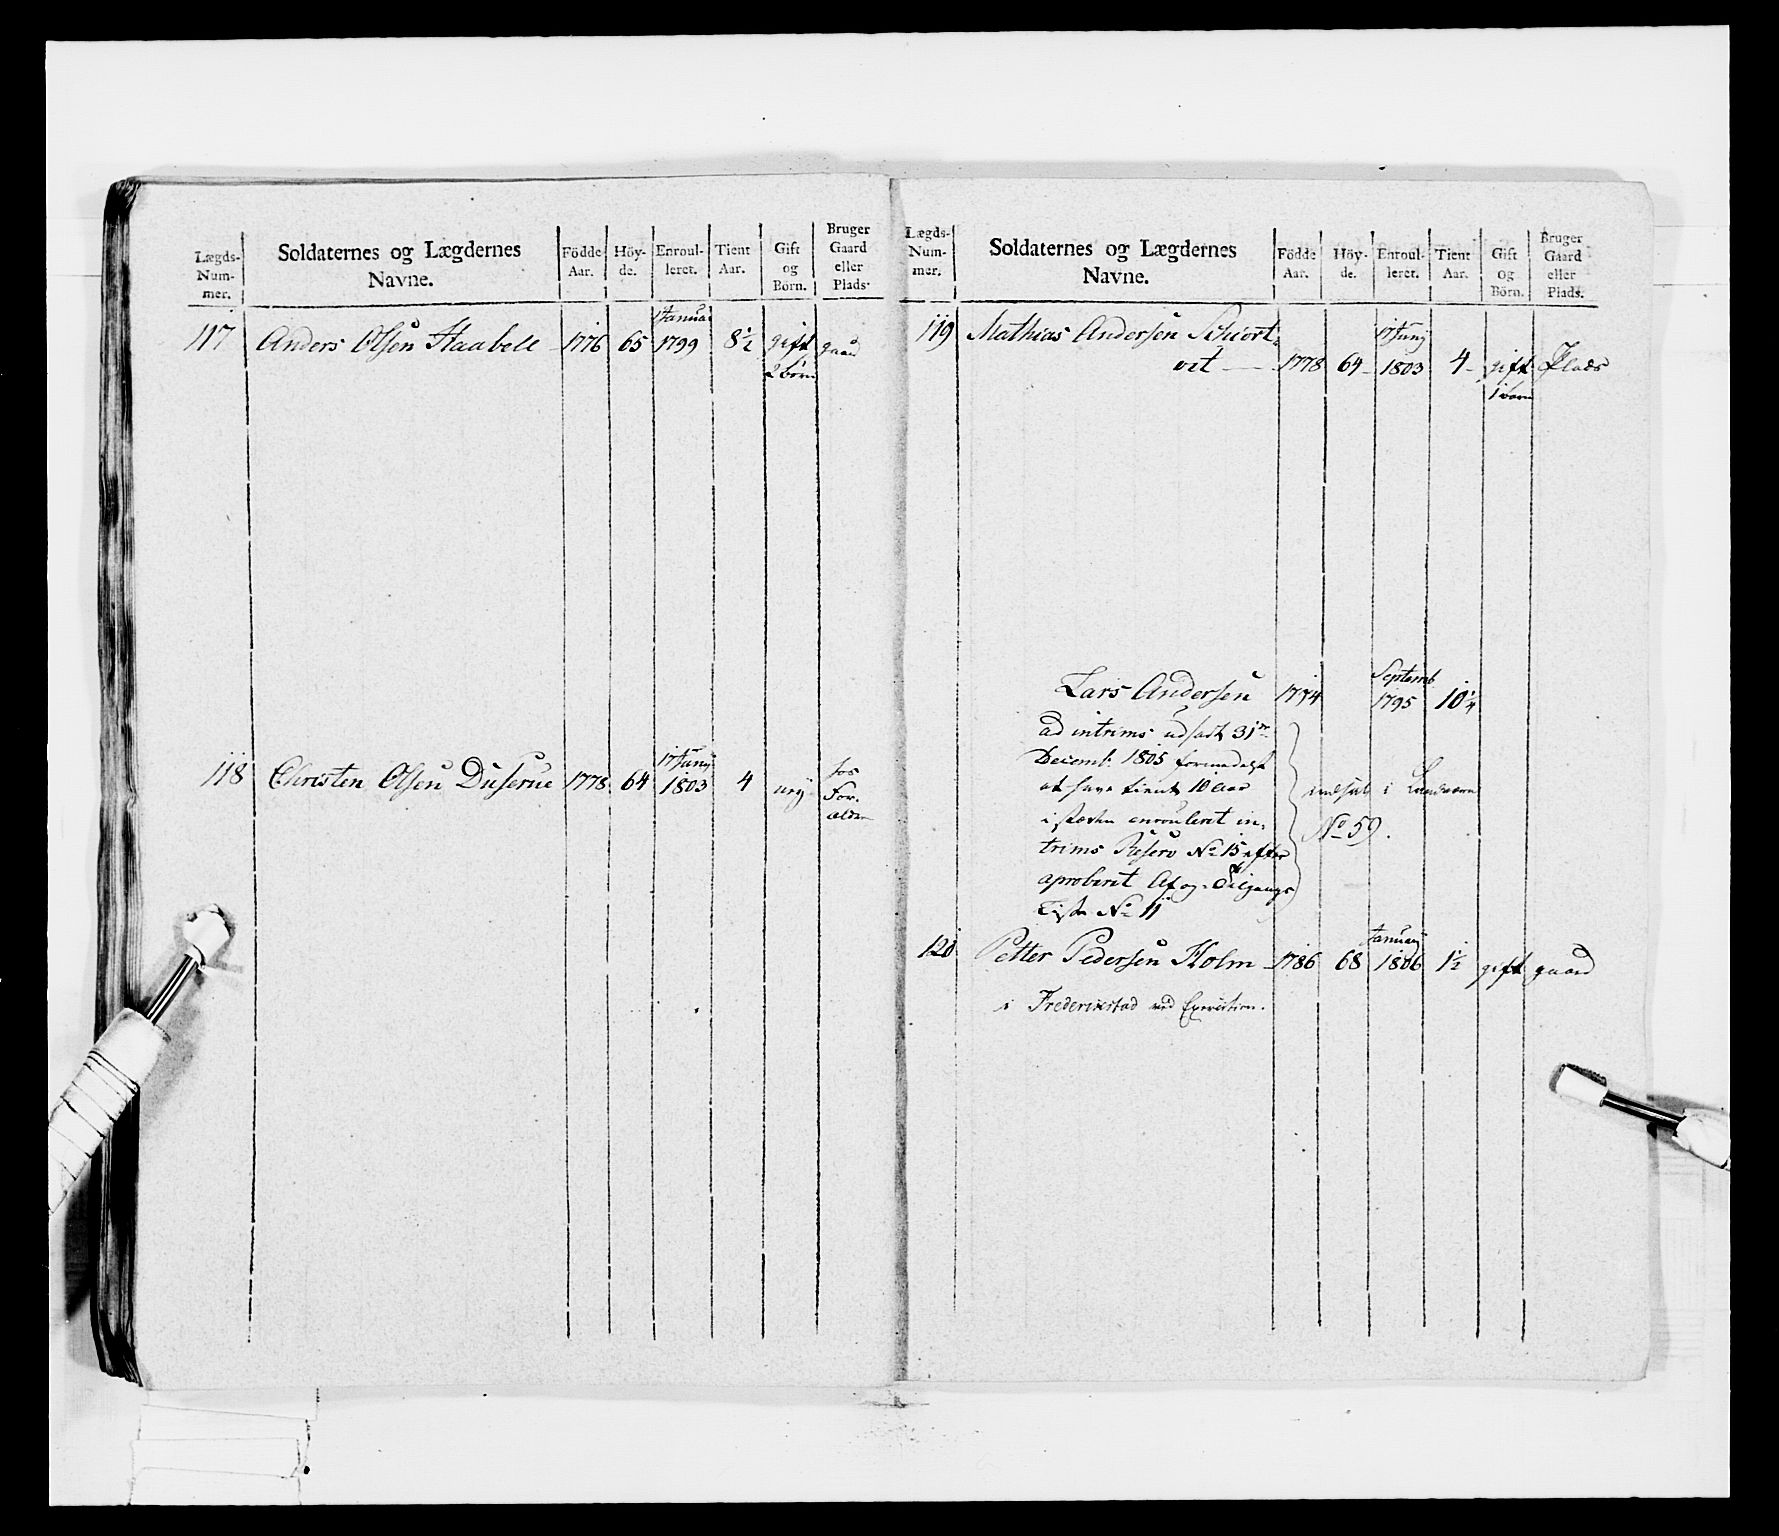 Lægds-
Num-
mer.
Soldaternes og Lægdernes
Navne.
Födde
Aar.
Höy-
de.
Enroul-
leret.
Tient
Aar.
Gift
og
Börn.
Bruger
Gaard
eller
Plads.
117 Anders Olsen Haabell 1776 65 1 Januar 1799 8½ gift gaard
2 börn
118 Christen Olsen Duserue 1778 64 17 Juny 1803 4 ug hos
For-
ældre
Lægds-
Num-
mer.
Soldaternes og Lægdernes
Navne.
Födde
Aar.
Höy-
de.
Enroul-
leret.
Tient
Aar.
Gift
og
Börn.
Bruger
Gaard
eller
Plads.
119 Mathias Andersen Schiort-
vet 1778 64 17 Juny 1803 4 gift Plads
1 barn
Lars Andersen 1774 Septemb 1795 10¼
ad intrims udsadt 31te
Decemb. 1805 formedelst
at have tient 10 Aar
i stæden enrouleret in-
trims Reserv No 15 efter
aproberet Af og Tilgangs
Liste No 11
indsat i Landværn
No 59.
120 Petter Pedersen Holm 1786 68 January 1806 1½ gift gaard
i Frederikstad ved Exersition.